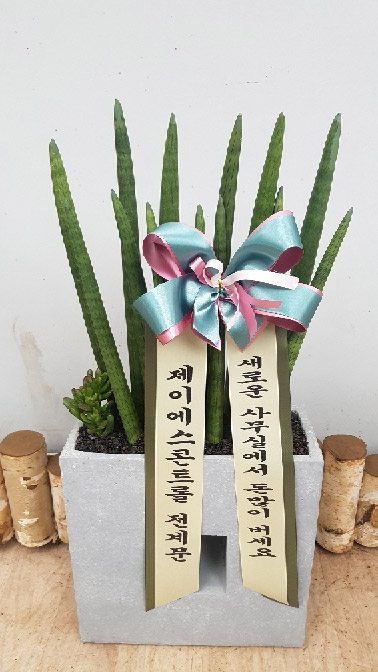 제이에스콘트롤 전계문
새로운 사무실에서 돈많이 버세요